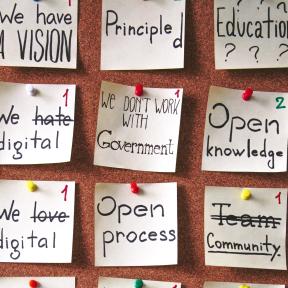 We have
A VISION
1
Principled
Education
? ? ?
We hate
digital
1
WE DON'T WORK
WITH
Government
1
Open
knowledge
2
We love
digital
1
Open
process
Team
Community.
1